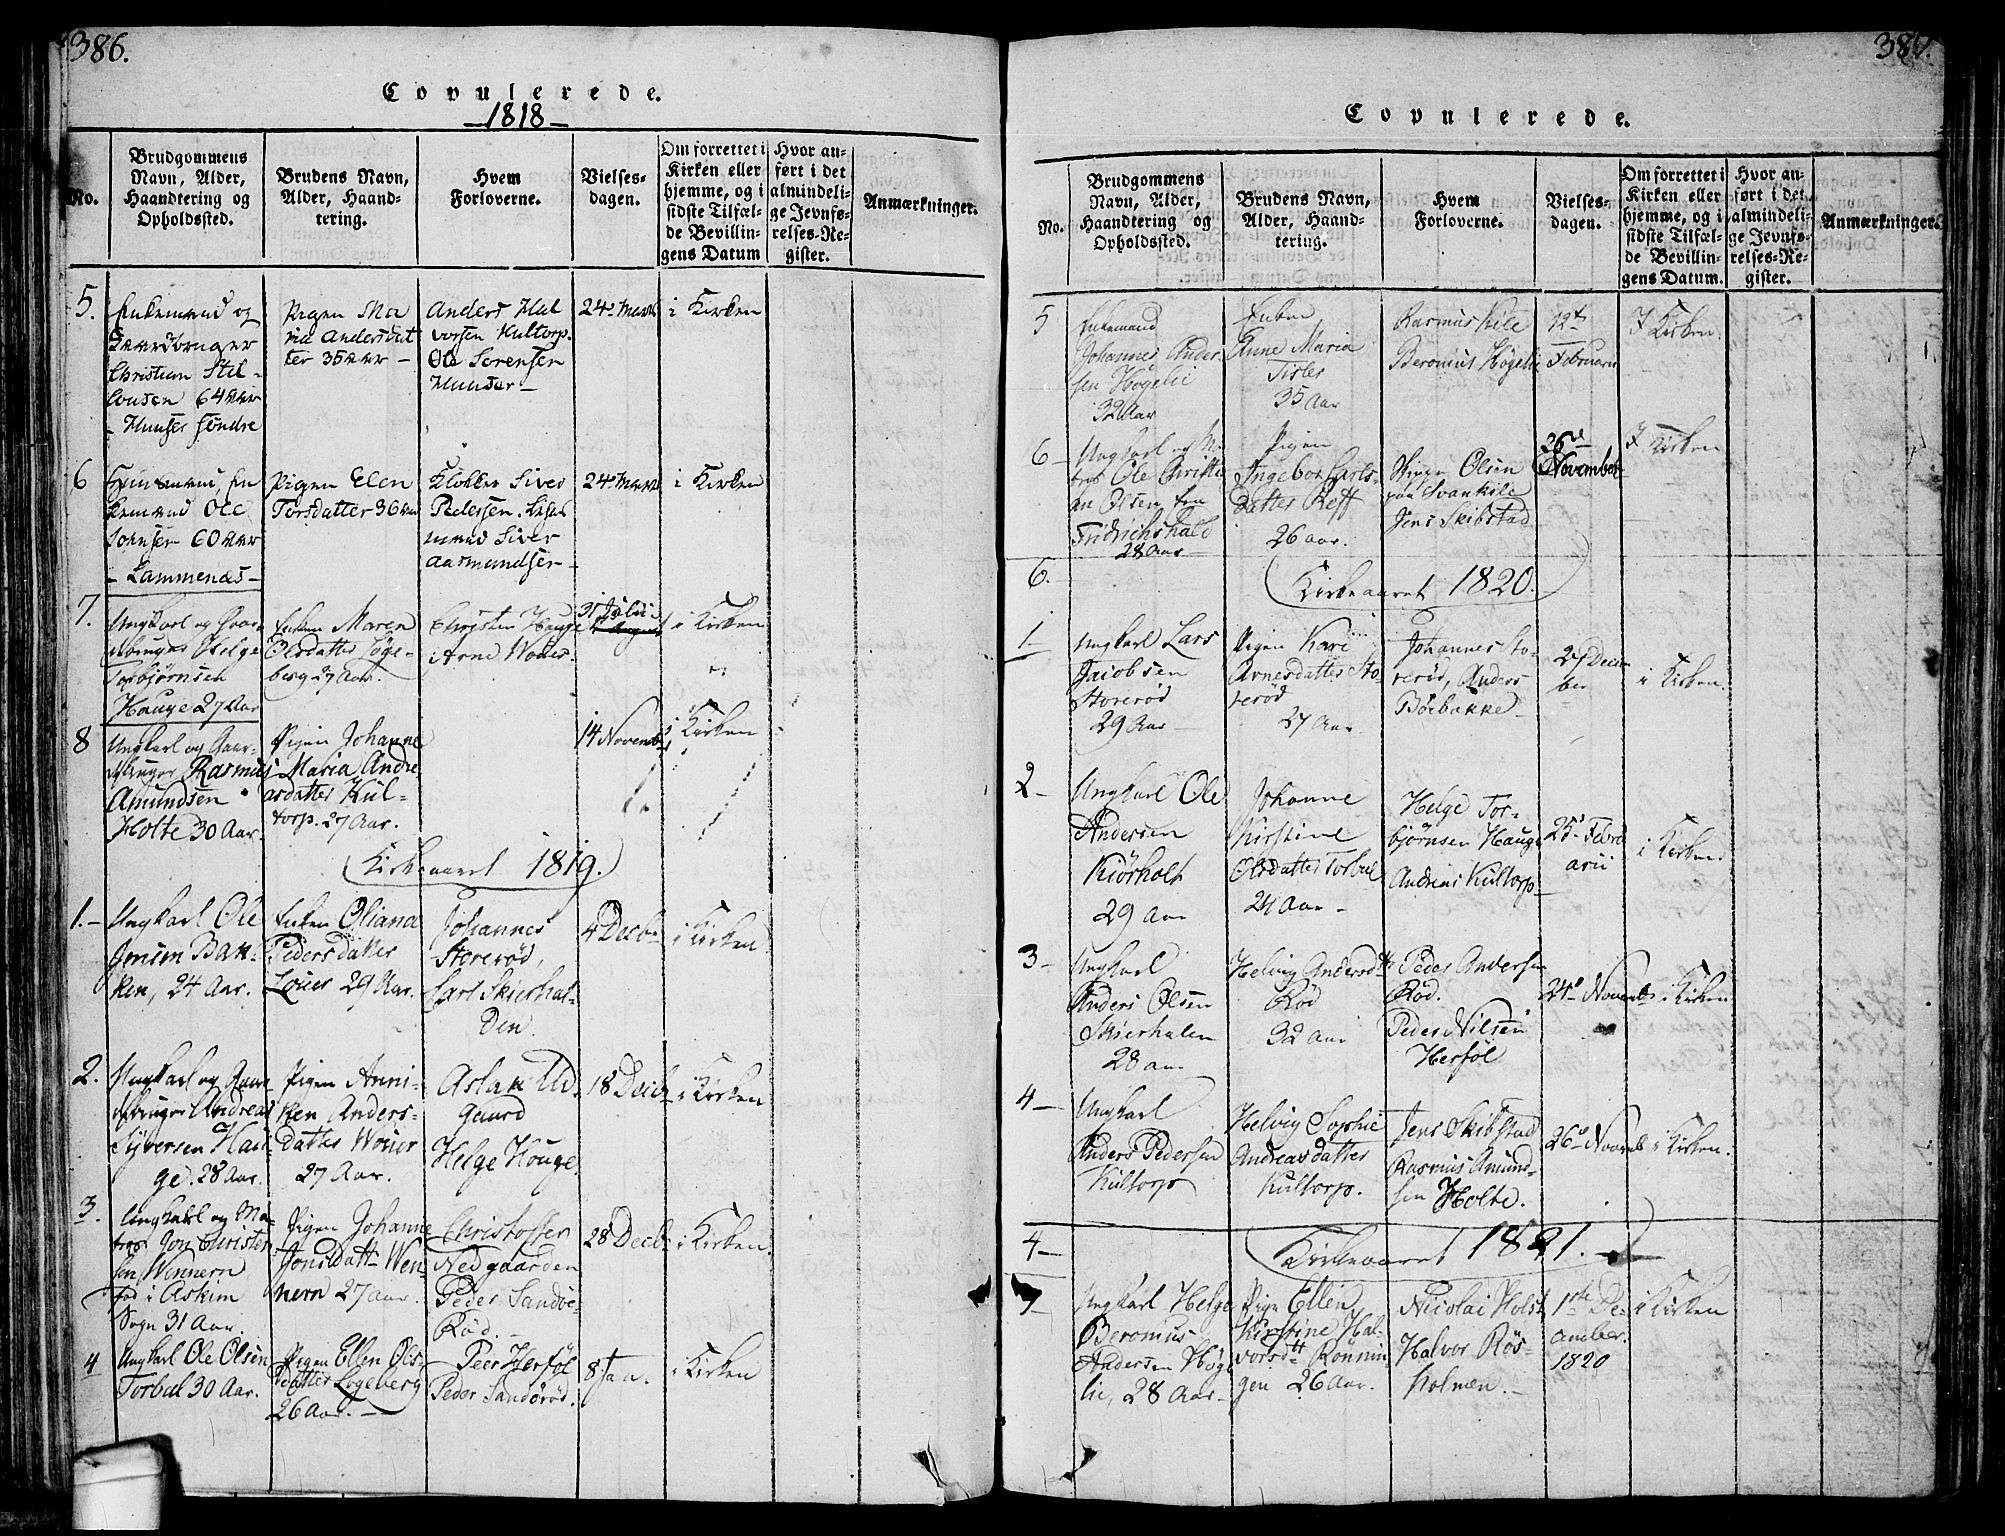 386.
Copulerede.
1818
No.
Brudgommens Navn, Alder, Haandtering og Opholdssted.
Brudens Navn, Alder, Haandtering.
Hvem Forloverne.
Vielsesdagen.
Om forrettet i Kirken eller hjemme, og i sidste Tilfælde Bevillingens Datum
Hvor anført i det almindelige Jevnførelses-Register.
Anmærkninger.
5.
Enkemand og
Gaardbruger
Christian Stil-
lousen 64 aar
Hunser søndre
Pigen Ma
ria Andersdat
ter 35 aar
Anders Hal
vorsen Kultorp.
Ole Sørensen
Hunser
24de Marts
i Kirken
6
Ole
60 aar
Lammenæs
Pigen Elen
Torsdatter 36 aar
Klokker Siver
Pedersen.
Siver
Aasmundsen
24de Marts
i Kirken
7.
Ungkarl og Gaar-
dbruger Helge
Torbjørnsen
Hauge 27 Aar
Enken Maren
Olsdatter Løge-
berg 27 Aar.
Christen Hauge
Arne Wouer.
31 Julii
i Kirken
8
Ungkarl og Gaar-
dbruger Rasmus
Amundsen
Holte 30 Aar.
Pigen Johanne
Maria Andre
asdatter Kul-
torp. 27 Aar.
14 Novemb
i Kirken
Kirkeaaret 1819.
1.
Ungkarl Ole
Jensen Bak-
ken, 24 Aar.
Enken Oliana
Pedersdatter
Louer 29 Aar.
Johannes
Storerød,
Carl Skierhal-
den.
4 Decbr
i Kirken
2.
Ungkarl og Gaar-
dbruger Andreas
Syversen Hau-
ge. 28 Aar.
Pigen Anni-
ken Anders-
datter Wouer
27 Aar.
Aslak Ud-
gaard
Helge Houge.
18 Decbr
i Kirken
3.
Ungkarl og Ma-
tros Jon Christen
sen Wennern
fød i Askim
Sogn 31 Aar.
Pigen Johanne
Jonsdatt. Wen-
nern 27 aar.
Christoffer
Nedgaarden
Peder Sandøe-
Rød.
28 Decbr
i Kirken.
4
Ungkarl Ole Olsen
Torbal 30 Aar.
Pigen Ellen Ols-
datter Løgeberg
26 Aar.
Peer Herføl
Peder Sandørød.
8 Jan.
i Kirken
387.
Copulerede.
No.
Brudgommens Navn, Alder, Haandtering og Opholdssted.
Brudens Navn, Alder, Haandtering.
Hvem Forloverne.
Vielsesdagen.
Om forrettet i Kirken eller hjemme, og i sidste Tilfælde Bevillingens Datum.
Hvor anført i det almindelige Jevnførelses-Register.
Anmærkninger.
5
Enkemand
Johannes Ander
sen Høgelie
32 Aar
Enken
Anne Maria
Tisler
35 Aar
Rasmus Kile
Beronius Høgelie
12te
Februarii
I Kirken.
6
Ungkarl og Ma
tros Ole Christi
an Olsen fra
Fridrichshald
28 Aar
Pigen
Ingebor Carls-
datter Reff
26 aar.
Olsen
paa Svankile
Jens Skibstad
26de
November
I Kirken
6.
Kirkeaaret 1820.
1
Ungkarl Lars
Jacobsen
Storerød
29 Aar
Pigen Kari
Arnesdatter Sto-
rerød
27 Aar
Johannes Sto-
rerød, Anders
Böebakke
27 Decem
ber
i Kirken.
2
Ungkarl Ole
Andersen
Kiörholt
29 Aar
Johanne
Kirstine
Olsdatter Torbal
24 Aar
Helge Tor-
bjørnsen Hauge
Andreas Kultorp
25 Febru
arii
i Kirken.
3
Ungkarl
Anders Olsen
Skierhalen
28 aar
Helvig Andersdtr
Rød
32 Aar
Peder Andersen
Rød.
Peder Nilsen
Herføl
24de Novemb
i Kirken
4
Ungkarl
Anders Pedersen
Kultorp
Helvig Sophie
Andreasdatter
Kultorp.
Jens Skibstad
Rasmus Amund-
sen Holte.
26de Novemb
i Kirken.
4
Kirkeaaret 1821.
Ungkarl Helge
Beronius
Andersen Høge
lie, 28 Aar
Pige Ellen
Kirstine Hal-
vorsdtt Rønnin
gen 26 Aar.
Nicolai Holst
Halvor Røs-
holmen.
1ste De-
cember.
1820
i Kirken